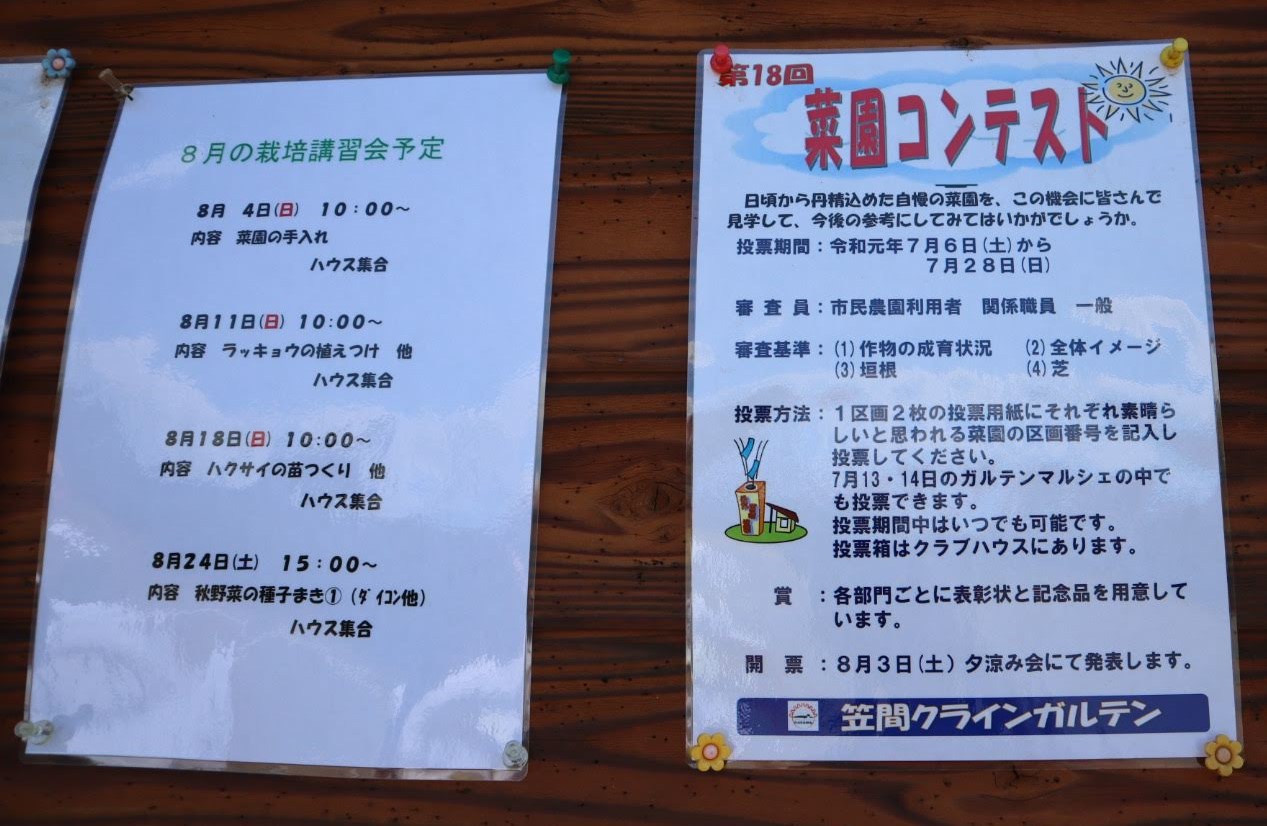 ８月の栽培講習会予定
8月　4日(日)　10：00～
内容　菜園の手入れ
ハウス集合
8月11日(日)　10:00～
内容　ラッキョウの植えつけ　他
ハウス集合
8月18日(日)　10:00～
内容　ハクサイの苗つくり　他
ハウス集合
8月24日(土)　15：00～
内容　秋野菜の種子まき①（ﾀﾞｲｺﾝ他）
ハウス集合
第18回
菜園コンテスト
日頃から丹精込めた自慢の菜園を、この機会に皆さんで
見学して、今後の参考にしてみてはいかがでしょうか。
投票期間：令和元年７月６日(土)から
７月２８日(日)
審査員：市民農園利用者　関係職員　一般
審査基準：(1)作物の成育状況　(2)全体イメージ
(3)垣根　(4)芝
投票方法：１区画２枚の投票用紙にそれぞれ素晴ら
しいと思われる菜園の区画番号を記入し
投票してください。
7月13・14日のガルテンマルシェの中で
も投票できます。
投票期間中はいつでも可能です。
投票箱はクラブハウスにあります。
賞　：各部門ごとに表彰状と記念品を用意して
います。
開　票：８月３日(土)夕涼み会にて発表します。
笠間クラインガルテン